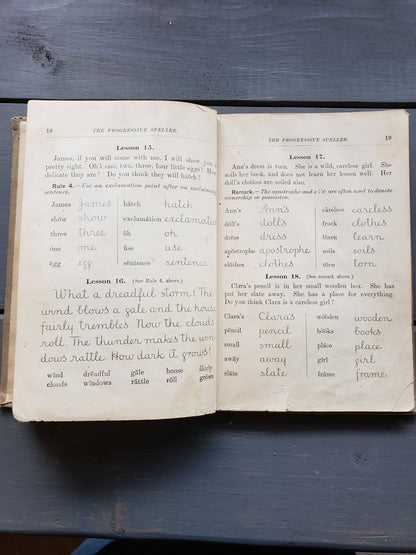 18
THE PROGRESSIVE SPELLER.
Lesson 15.
James, if you will come with me, I will show you a
pretty sight. Oh! one, two, three, four little eggs! How
delicate they are! Do you think they will hatch?
Rule 4.—Use an exclamation point after an exclaiming
sentence.
James James hătch hatch
shōw show exclamation exclamation
three three ōh oh
one one use use
ĕgg egg sĕntence sentence
Lesson 16. (See Rule 4, above.)
What a dreadful storm! The
wind blows a gale and the house
fairly trembles. Now the clouds
roll. The thunder makes the win-
dows rattle. How dark it grows!
wĭnd drĕadful gāle house fâirly
clouds wĭndows răttle rōll grōws
THE PROGRESSIVE SPELLER. 19
Lesson 17.
Ann's dress is torn. She is a wild, careless girl. She
soils her book, and does not learn her lesson well. Her
doll's clothes are soiled also.
Remark.—The apostrophe and s ('s) are often used to denote
ownership or possession.
Ann's Ann's câreless careless
dŏll's doll's frock clothes
drĕss dress lẽarn learn
apŏstrophe apostrophe soils soils
clōthes clothes tōrn torn
Lesson 18. (See remark above.)
Clara's pencil is in her small wooden box. She has
put her slate away. She has a place for everything.
Do you think Clara is a careless girl?
Clara's Clara's wooden wooden
pĕncil pencil books books
small small plāce place
awāy away girl girl
slāte slate frāme frame